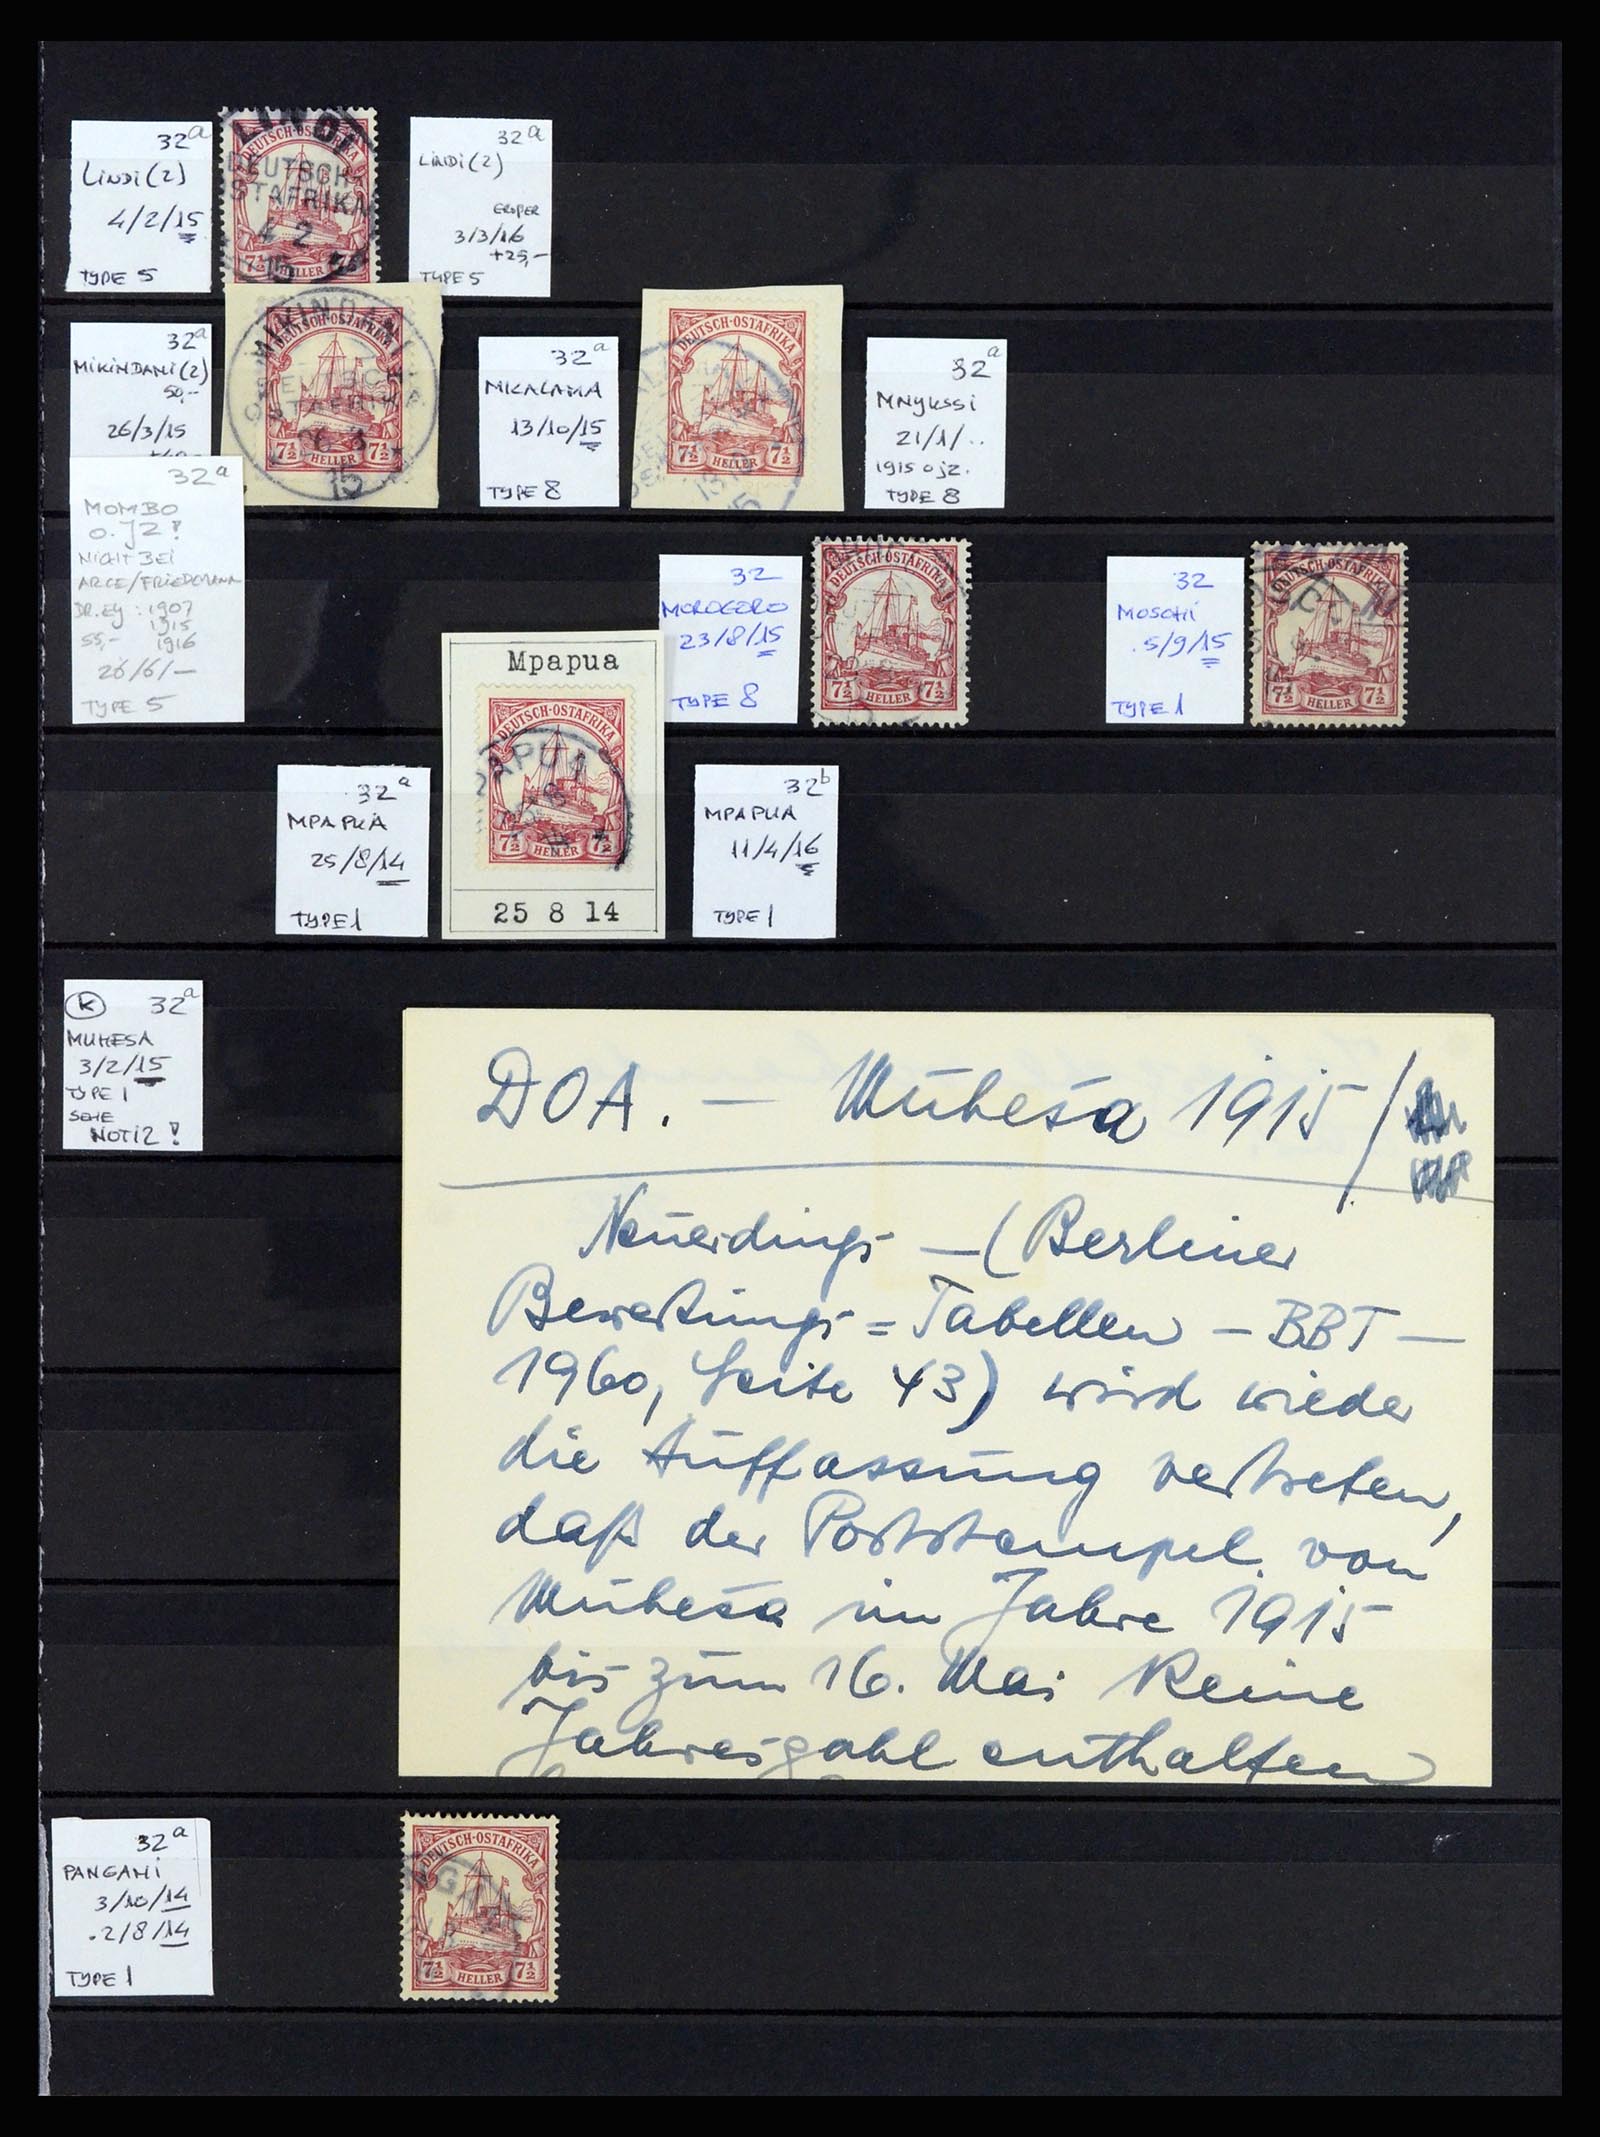 32a
LINDI (2)
4/2/15
TYPE 5
LINDI
DEUTSCH-OSTAFRIKA
DEUTSCH-
OSTAFRIKA
4 2
15
7½ HELLER 7½
32a
LINDI (2)
3/3/16
+25,-
TYPE 5
32a
MIKINDANI (2)
50,-
26/3/15
MIKINDANI
DEUTSCH-OSTAFRIKA
26 3
15
7½ HELLER 7½
32a
MKALAMA
13/10/15
TYPE 8
DEUTSCH-OSTAFRIKA
7½ HELLER 7½
32a
MNYUSSI
21/1/..
1915 o jz.
TYPE 8
32a
MOMBO
o. JZ!
NICHT BEI
ARGE/FRIEDEMANN
DR. EY : 1907
1915
55,- 1916
26/6/—
TYPE 5
32
MOROGORO
23/8/15
TYPE 8
DEUTSCH-OSTAFRIKA
7½ HELLER 7½
32
MOSCHI
.5/9/15
TYPE 1
DEUTSCH-OSTAFRIKA
7½ HELLER 7½
32a
MPAPUA
25/8/14
TYPE 1
Mpapua
DEUTSCH-OSTAFRIKA
PAPUA
7½ HELLER 7½
25 8 14
32b
MPAPUA
11/4/16
TYPE 1
K 32a
MUHESA
3/2/15
TYPE 1
SEHE
NOTIZ!
DOA. — Muhesa 1915/
Neuerdings — (Berliner
Bewertungs=Tabellen — BBT —
1960, Seite 43) wird wieder
die Auffassung vertreten,
daß der Poststempel von
Muhesa im Jahre 1915
bis zum 16. Mai keine
Jahreszahl enthalten
32a
PANGANI
3/10/14
.2/8/14
TYPE 1
DEUTSCH-OSTAFRIKA
7½ HELLER 7½